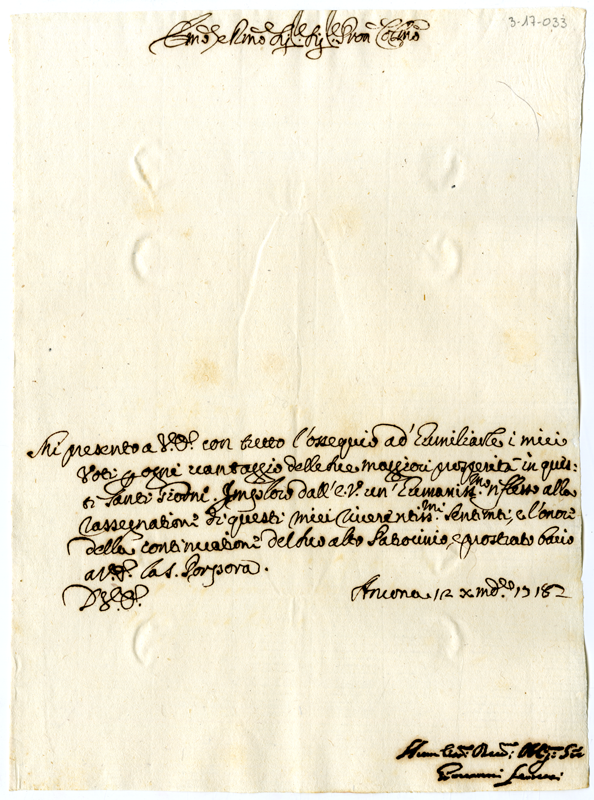 3-17-033
Em̃o e Rmõ Sig.r Sig.r Pron Colmõ
Mi presento a V.E. con tutto l'ossequio ad' humiliarle i miei
Voti p ogni vantaggio delle sue maggiori prosperità in ques:
ti Santi Giorni. Imploro dall'E.V. un' humaniss.mo riflesso alla
rassegnation di questi miei riverentiss.mi Sentim.ti, e l'onor
della continuation del suo alto Patrocinio, e prostrato bacio
a V.E. la S. Porpora.
D. V. E. Ancona 12 Xmb.re 1718
Giovanni